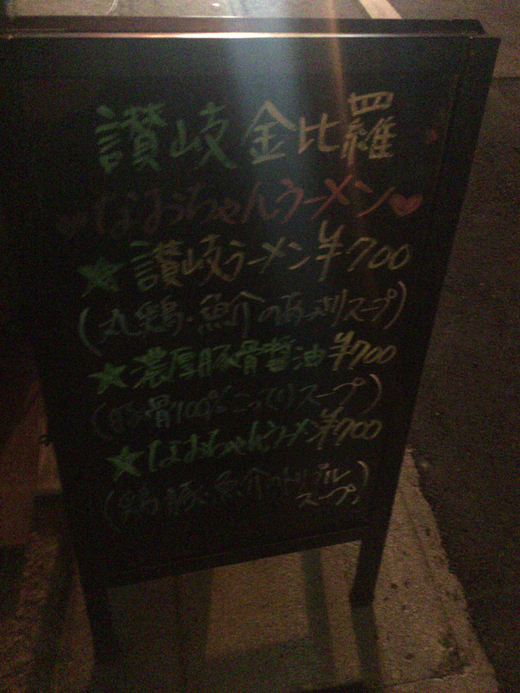 讃岐金比羅
♥なおちゃんラーメン♥
★讃岐ラーメン¥700
(丸鶏・魚介のあっさりスープ)
★濃厚豚骨醤油¥700
(豚骨100%こってりスープ)
★なおちゃんラーメン¥700
(鶏・豚・魚介のトリプル
スープ)